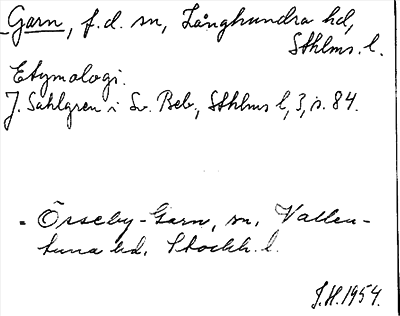 Garn, f.d. sn, Långhundra hd,
Sthlms. l.
Etymologi.
J. Sahlgren i Sv. Beb., Sthlms l, 3, s. 84.
= Össeby-Garn, sn, Vallen-
tuna hd, Stockh. l.
J.H. 1954.